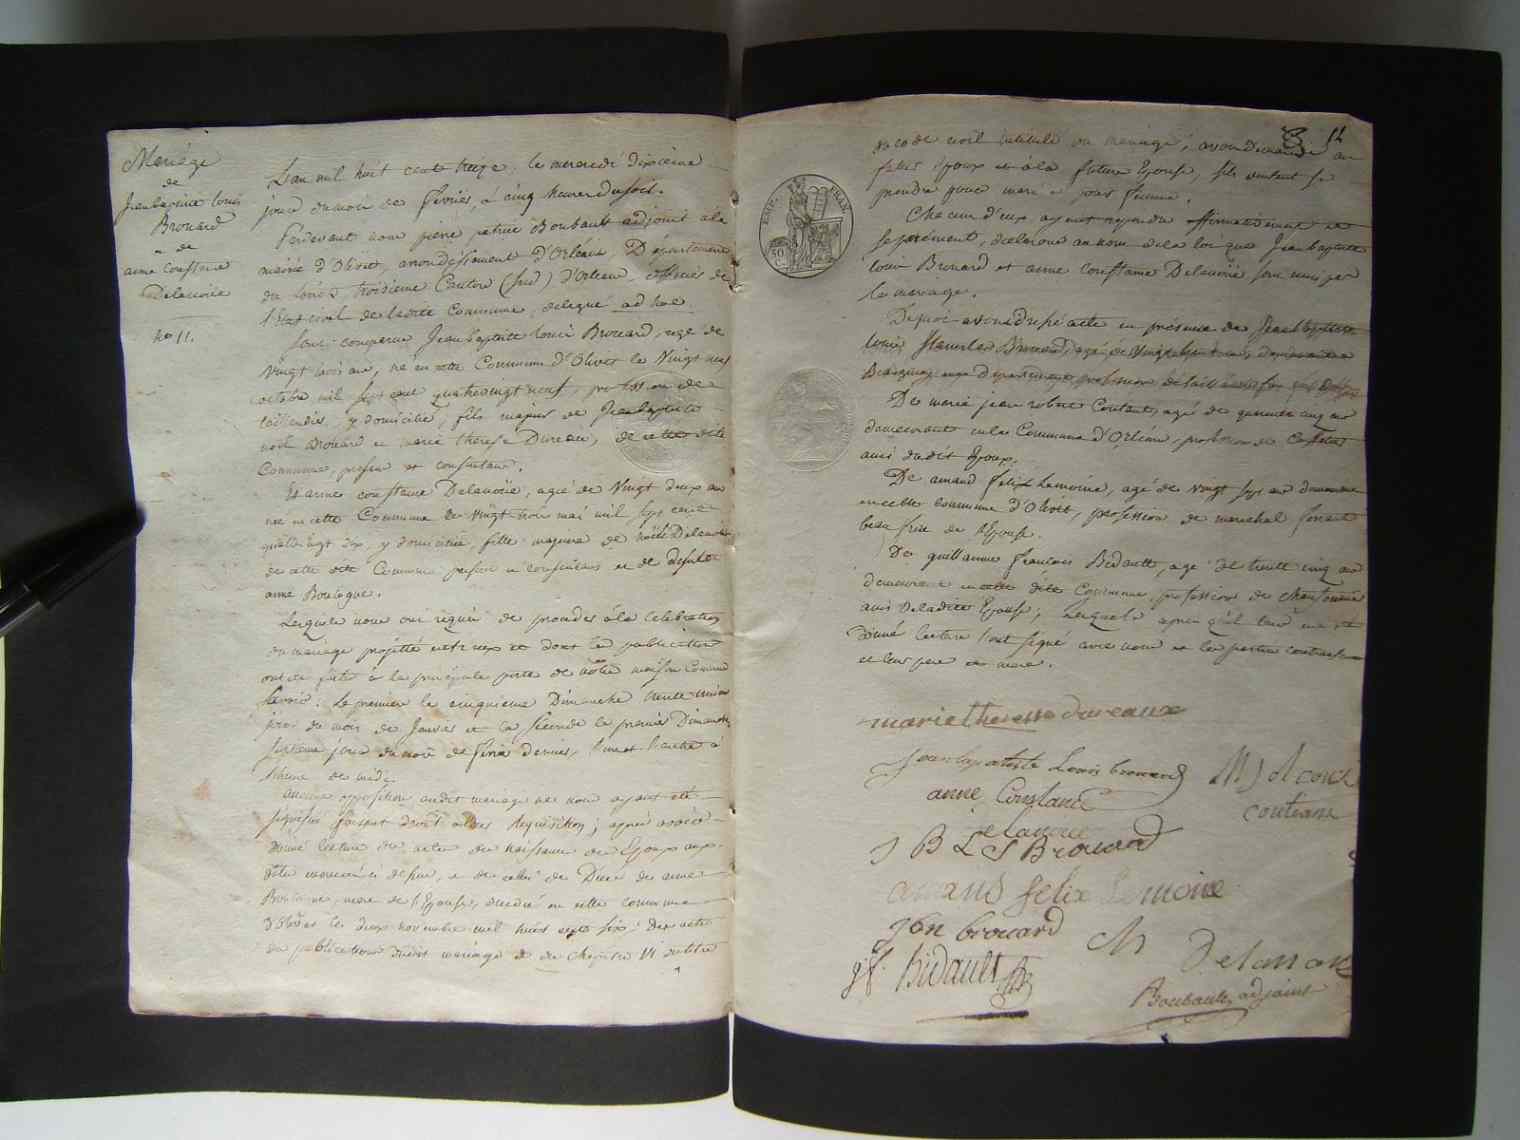 Mariage
de
Jean baptiste Louis
Brouard
de
anne Constance
Delanoüe
No 11.
L'an mil huit cent treize, le mercredi dixieme
jour du mois de fevrier, à cinq heures du soir.
Pardevant nous pierre patrice Boubault adjoint à la
mairie d'Olivet, arrondissement d'Orléans, Département
du Loiret, troisieme Canton (sud) d'Orleans, officier de
l'Etat civil de ladite Commune, delegué ad hoc.
Sont comparus Jean baptiste Louis Brouard, agé de
vingt trois ans, né en cette Commune d'Olivet le Vingt neuf
octobre mil sept cent quatrevingt neuf, profession de
taillandier, y domicilié, fils majeur de Jean baptiste
noël Brouard et marie therese Dureau, de cette dite
Commune, present et consentans.
Et anne constance Delanoüe, agée de Vingt deux ans
née en cette Commune le vingt trois mai mil sept cent
quatrevingt dix, y domiciliée, fille majeure de Delanoüe
de cette dite Commune present et consentant et de defunte
anne Boulogne.
Lesquels nous ont requis de proceder à la celebration
du mariage projetté entre eux et dont les publications
ont été faites à la principale porte de nôtre maison Commune
savoir: la premiere le cinquieme Dimanche trente unieme
jour du mois de Janvier et la seconde le premier Dimanche
septieme jour du mois de fevrier dernier, l'une et l'autre à
l'heure de midi.
aucune opposition audit mariage ne nous ayant été
signifiée faisant droit à leur requisition; après avoir
donné lecture des actes de naissance des Epoux aux
dates mentionnées dessus, et de celui de Decès de anne
Boulogne, mere de l'Epouse, decedée en cette commune
d'Olivet le deux novembre mil huit cent six; des actes
de publications dudit mariage et du chapitre VI du titre
du code civil intitulé du mariage, avons demandé au
futur Epoux et à la future Epouse, s'ils veulent se
prendre pour mari et pour femme.
Chacun d'eux ayant repondu affirmativement et
séparément, declarons au nom de la loi que Jean baptiste
louis Brouard et anne constance Delanoüe sont unis par
le mariage.
De quoi avons dressé acte en présence de Jean baptiste
louis Stanislas Brouard, agé de vingt
De marie jean robert Coutant, agé de quarante cinq ans
demeurant en la Commune d'Orléans, profession de
ami dudit Epoux.
De amand felix Lemoine, agé de vingt sept ans demeurant
en cette commune d'Olivet, profession de marechal ferrant
beau frere de l'Epouse.
De guillaume françois Bidault, agé de trente cinq ans
demeurant en cette dite Commune, profession de
ami de ladite Epouse; lesquels après qu'il leur en a été
donné lecture l'ont signé avec nous et les parties contractantes
et leur pere et mere.
EMP. FRAN.
50 C
marie therese dureaux
jean baptiste Louis brouard
anne Constance
Delanoüe
coutant
J B L S Brouard
amand felix Lemoine
brouard
Delanoue
g f. Bidault
Boubault, adjoint